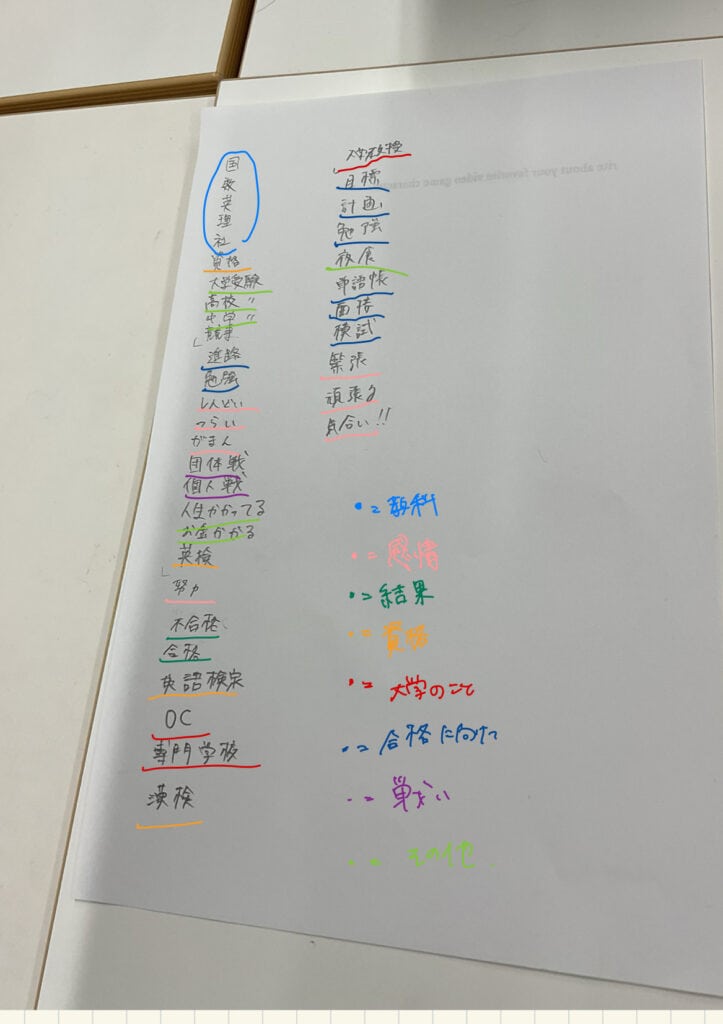 国
数
英
理
社
資格
大学受験
高校 〃
中学 〃
競争
進路
勉強
しんどい
つらい
がまん
団体戦
個人戦
人生かかってる
お金かかる
英検
努力
不合格
合格
英語検定
OC
専門学校
漢検
目標
計画
勉強
夜食
単語帳
面接
模試
緊張
頑張る
気合い!!
・=教科
・=感情
・=結果
・=資格
・=大学のこと
・=合格に向けて
・=戦い
・=その他
rite about your favorite video game charac